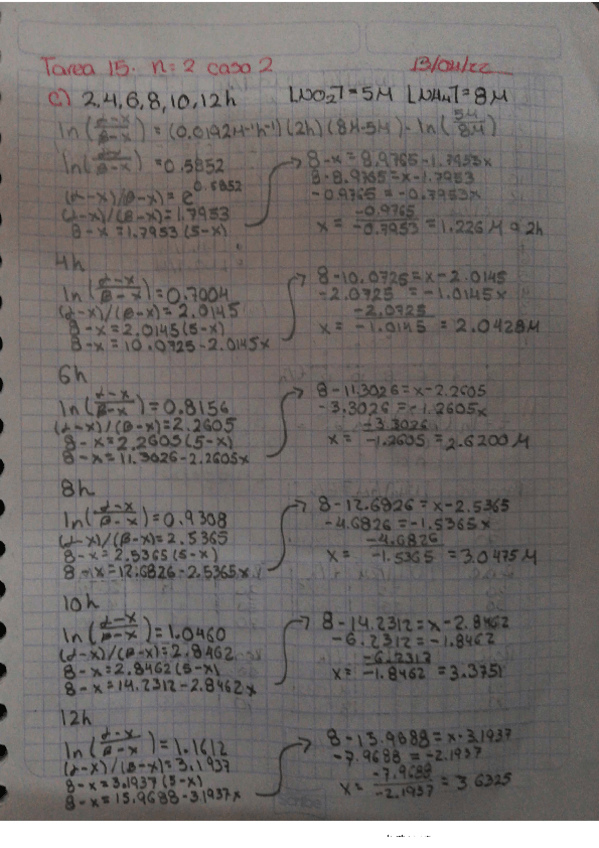 Tarea 15. n=2 caso 2 13/04/22
c) 2,4,6,8,10,12h [NO₂]=5M [NH₄]=8M
ln(α-x/β-x)=(0.0192M⁻¹h⁻¹)(2h)(8M-5M)-ln(5M/8M)
ln(α-x/β-x)=0.5852
(α-x)/(β-x)=e^0.5852
(α-x)/(β-x)=1.7953
8-x=1.7953(5-x)
8-x=8.9765-1.7953x
8-8.9765=x-1.7953
-0.9765=-0.7953x
x=-0.9765/-0.7953=1.226M a 2h
4h
ln(α-x/β-x)=0.7004
(α-x)/(β-x)=2.0145
8-x=2.0145(5-x)
8-x=10.0725-2.0145x
8-10.0725=x-2.0145
-2.0725=-1.0145x
x=-2.0725/-1.0145=2.0428M
6h
ln(α-x/β-x)=0.8156
(α-x)/(β-x)=2.2605
8-x=2.2605(5-x)
8-x=11.3026-2.2605x
8-11.3026=x-2.2605
-3.3026=-1.2605x
x=-3.3026/-1.2605=2.6200M
8h
ln(α-x/β-x)=0.9308
(α-x)/(β-x)=2.5365
8-x=2.5365(5-x)
8-x=12.6826-2.5365x
8-12.6826=x-2.5365
-4.6826=-1.5365x
x=-4.6826/-1.5365=3.0475M
10h
ln(α-x/β-x)=1.0460
(α-x)/(β-x)=2.8462
8-x=2.8462(5-x)
8-x=14.2312-2.8462x
8-14.2312=x-2.8462
-6.2312=-1.8462
x=-6.2312/-1.8462=3.3751
12h
ln(α-x/β-x)=1.1612
(α-x)/(β-x)=3.1937
8-x=3.1937(5-x)
8-x=15.9688-3.1937x
8-15.9688=x-3.1937
-7.9688=-2.1937
x=-7.9688/-2.1937=3.6325
Scribe